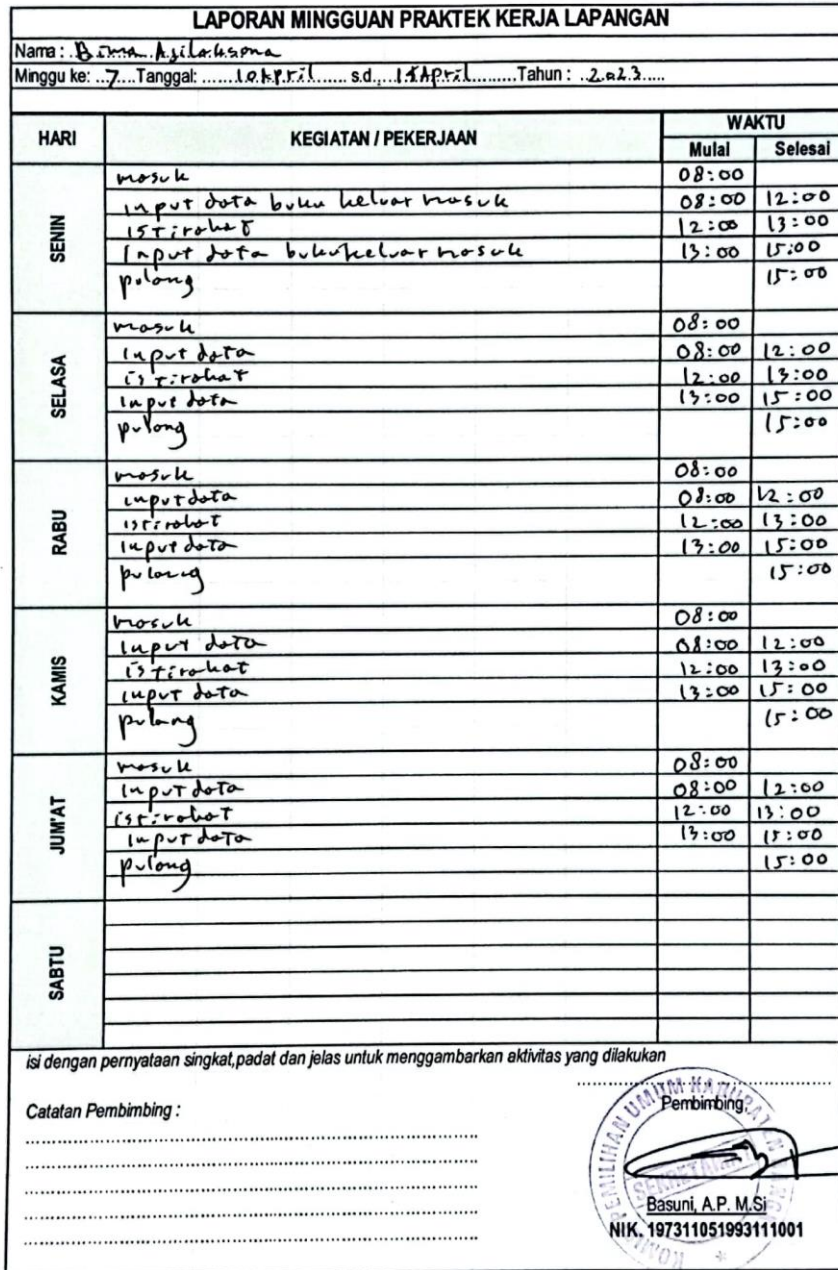 LAPORAN MINGGUAN PRAKTEK KERJA LAPANGAN
Nama : Bima Agilaksana
Minggu ke: 7 Tanggal: 10 April s.d. 15 April Tahun : 2023
HARI KEGIATAN / PEKERJAAN WAKTU
Mulai Selesai
SENIN
masuk 08:00
input data buku keluar masuk 08:00 12:00
istirahat 12:00 13:00
Input data buku keluar masuk 13:00 15:00
pulang 15:00
SELASA
masuk 08:00
input data 08:00 12:00
istirahat 12:00 13:00
input data 13:00 15:00
pulang 15:00
RABU
masuk 08:00
input data 08:00 12:00
istirahat 12:00 13:00
input data 13:00 15:00
pulang 15:00
KAMIS
masuk 08:00
input data 08:00 12:00
istirahat 12:00 13:00
input data 13:00 15:00
pulang 15:00
JUM'AT
masuk 08:00
input data 08:00 12:00
istirahat 12:00 13:00
input data 13:00 15:00
pulang 15:00
SABTU
isi dengan pernyataan singkat,padat dan jelas untuk menggambarkan aktivitas yang dilakukan
Catatan Pembimbing :
Pembimbing,
PEMILIHAN UMUM KABUPATEN
SEKRETARIAT
Basuni, A.P. M.Si
NIK. 197311051993111001